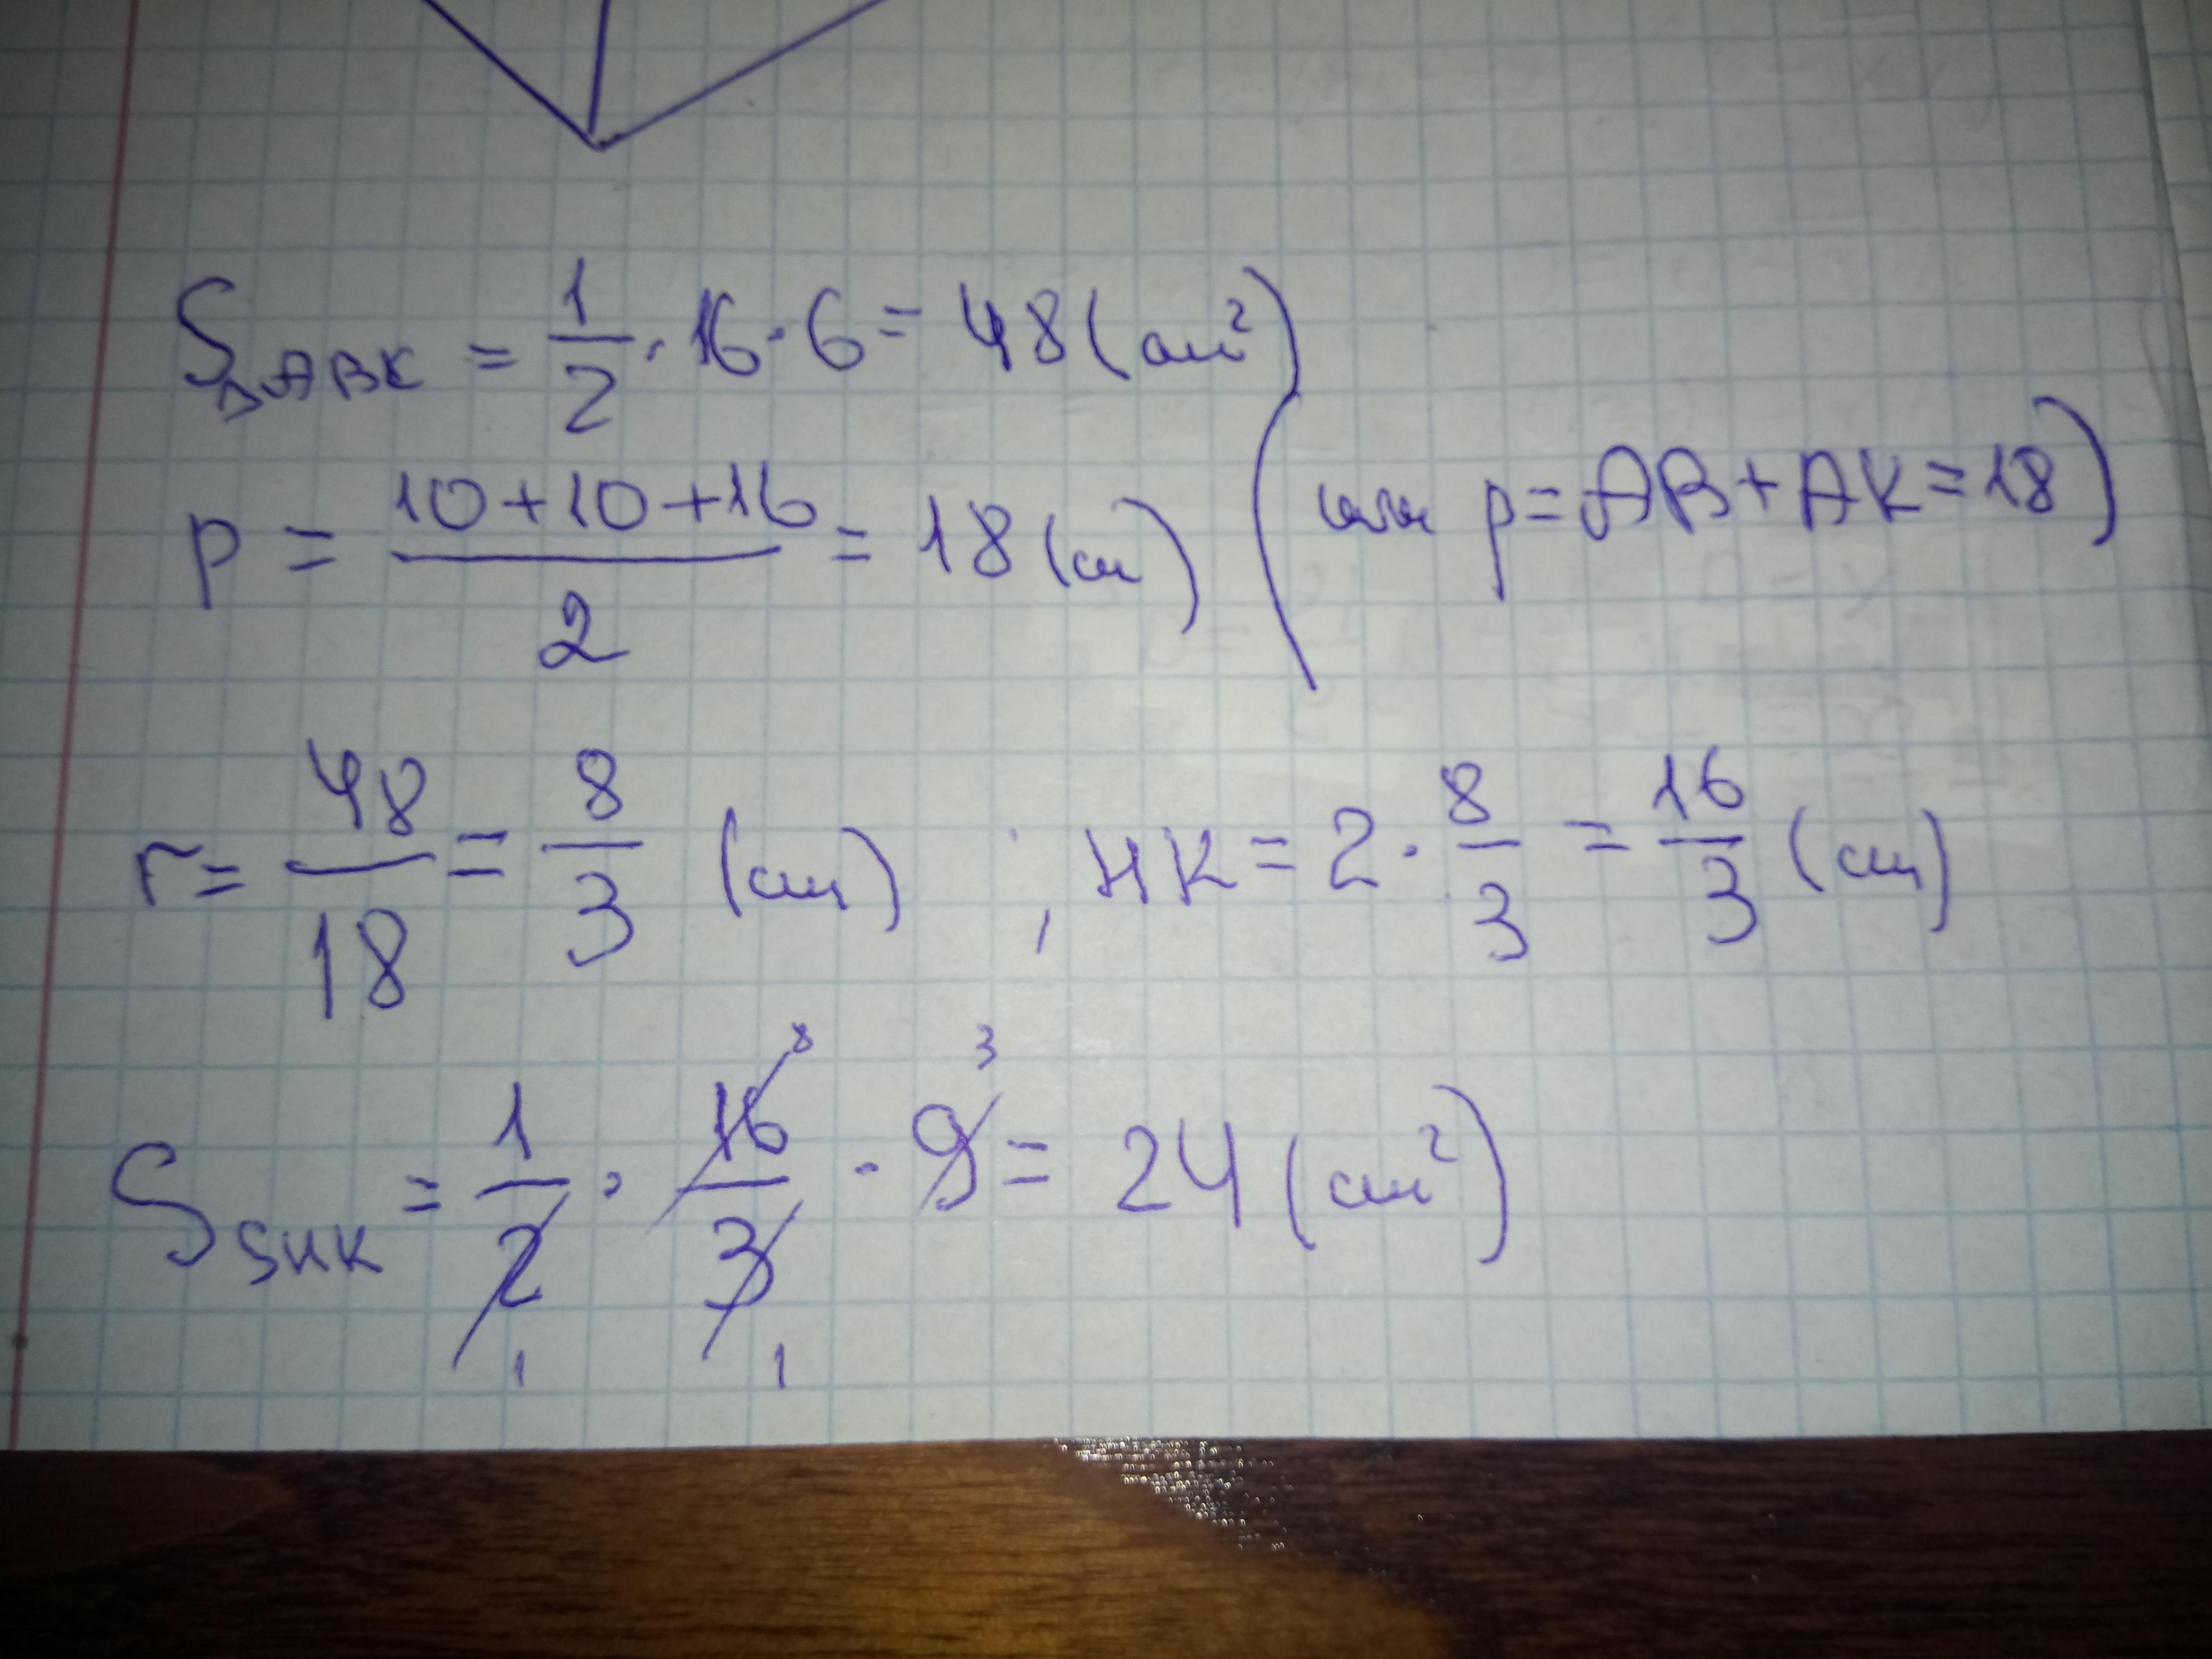 S△ABK = 1/2 · 16 · 6 = 48 (см²)
p = (10+10+16)/2 = 18 (см) (или p = AB + AK = 18)
r = 48/18 = 8/3 (см) ; HK = 2 · 8/3 = 16/3 (см)
S SHK = 1/2 · 16/3 · 9 = 24 (см²)